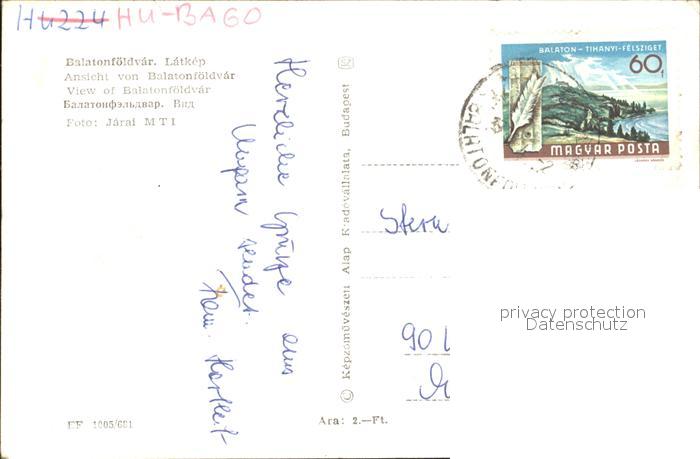 HU224 HU-BA60
Balatonföldvár. Látkép
Ansicht von Balatonföldvár
View of Balatonföldvár
Балатонфэльдвар. Вид
Foto: Járai MTI
Herzliche Grüße aus
Ungarn sendet
Fam.
© Képzőművészeti Alap Kiadóvállalata, Budapest
BALATON – TIHANYI-FÉLSZIGET
60f
MAGYAR POSTA
Stern
90
privacy protection
Datenschutz
EF 1005/681
Ára: 2.—Ft.